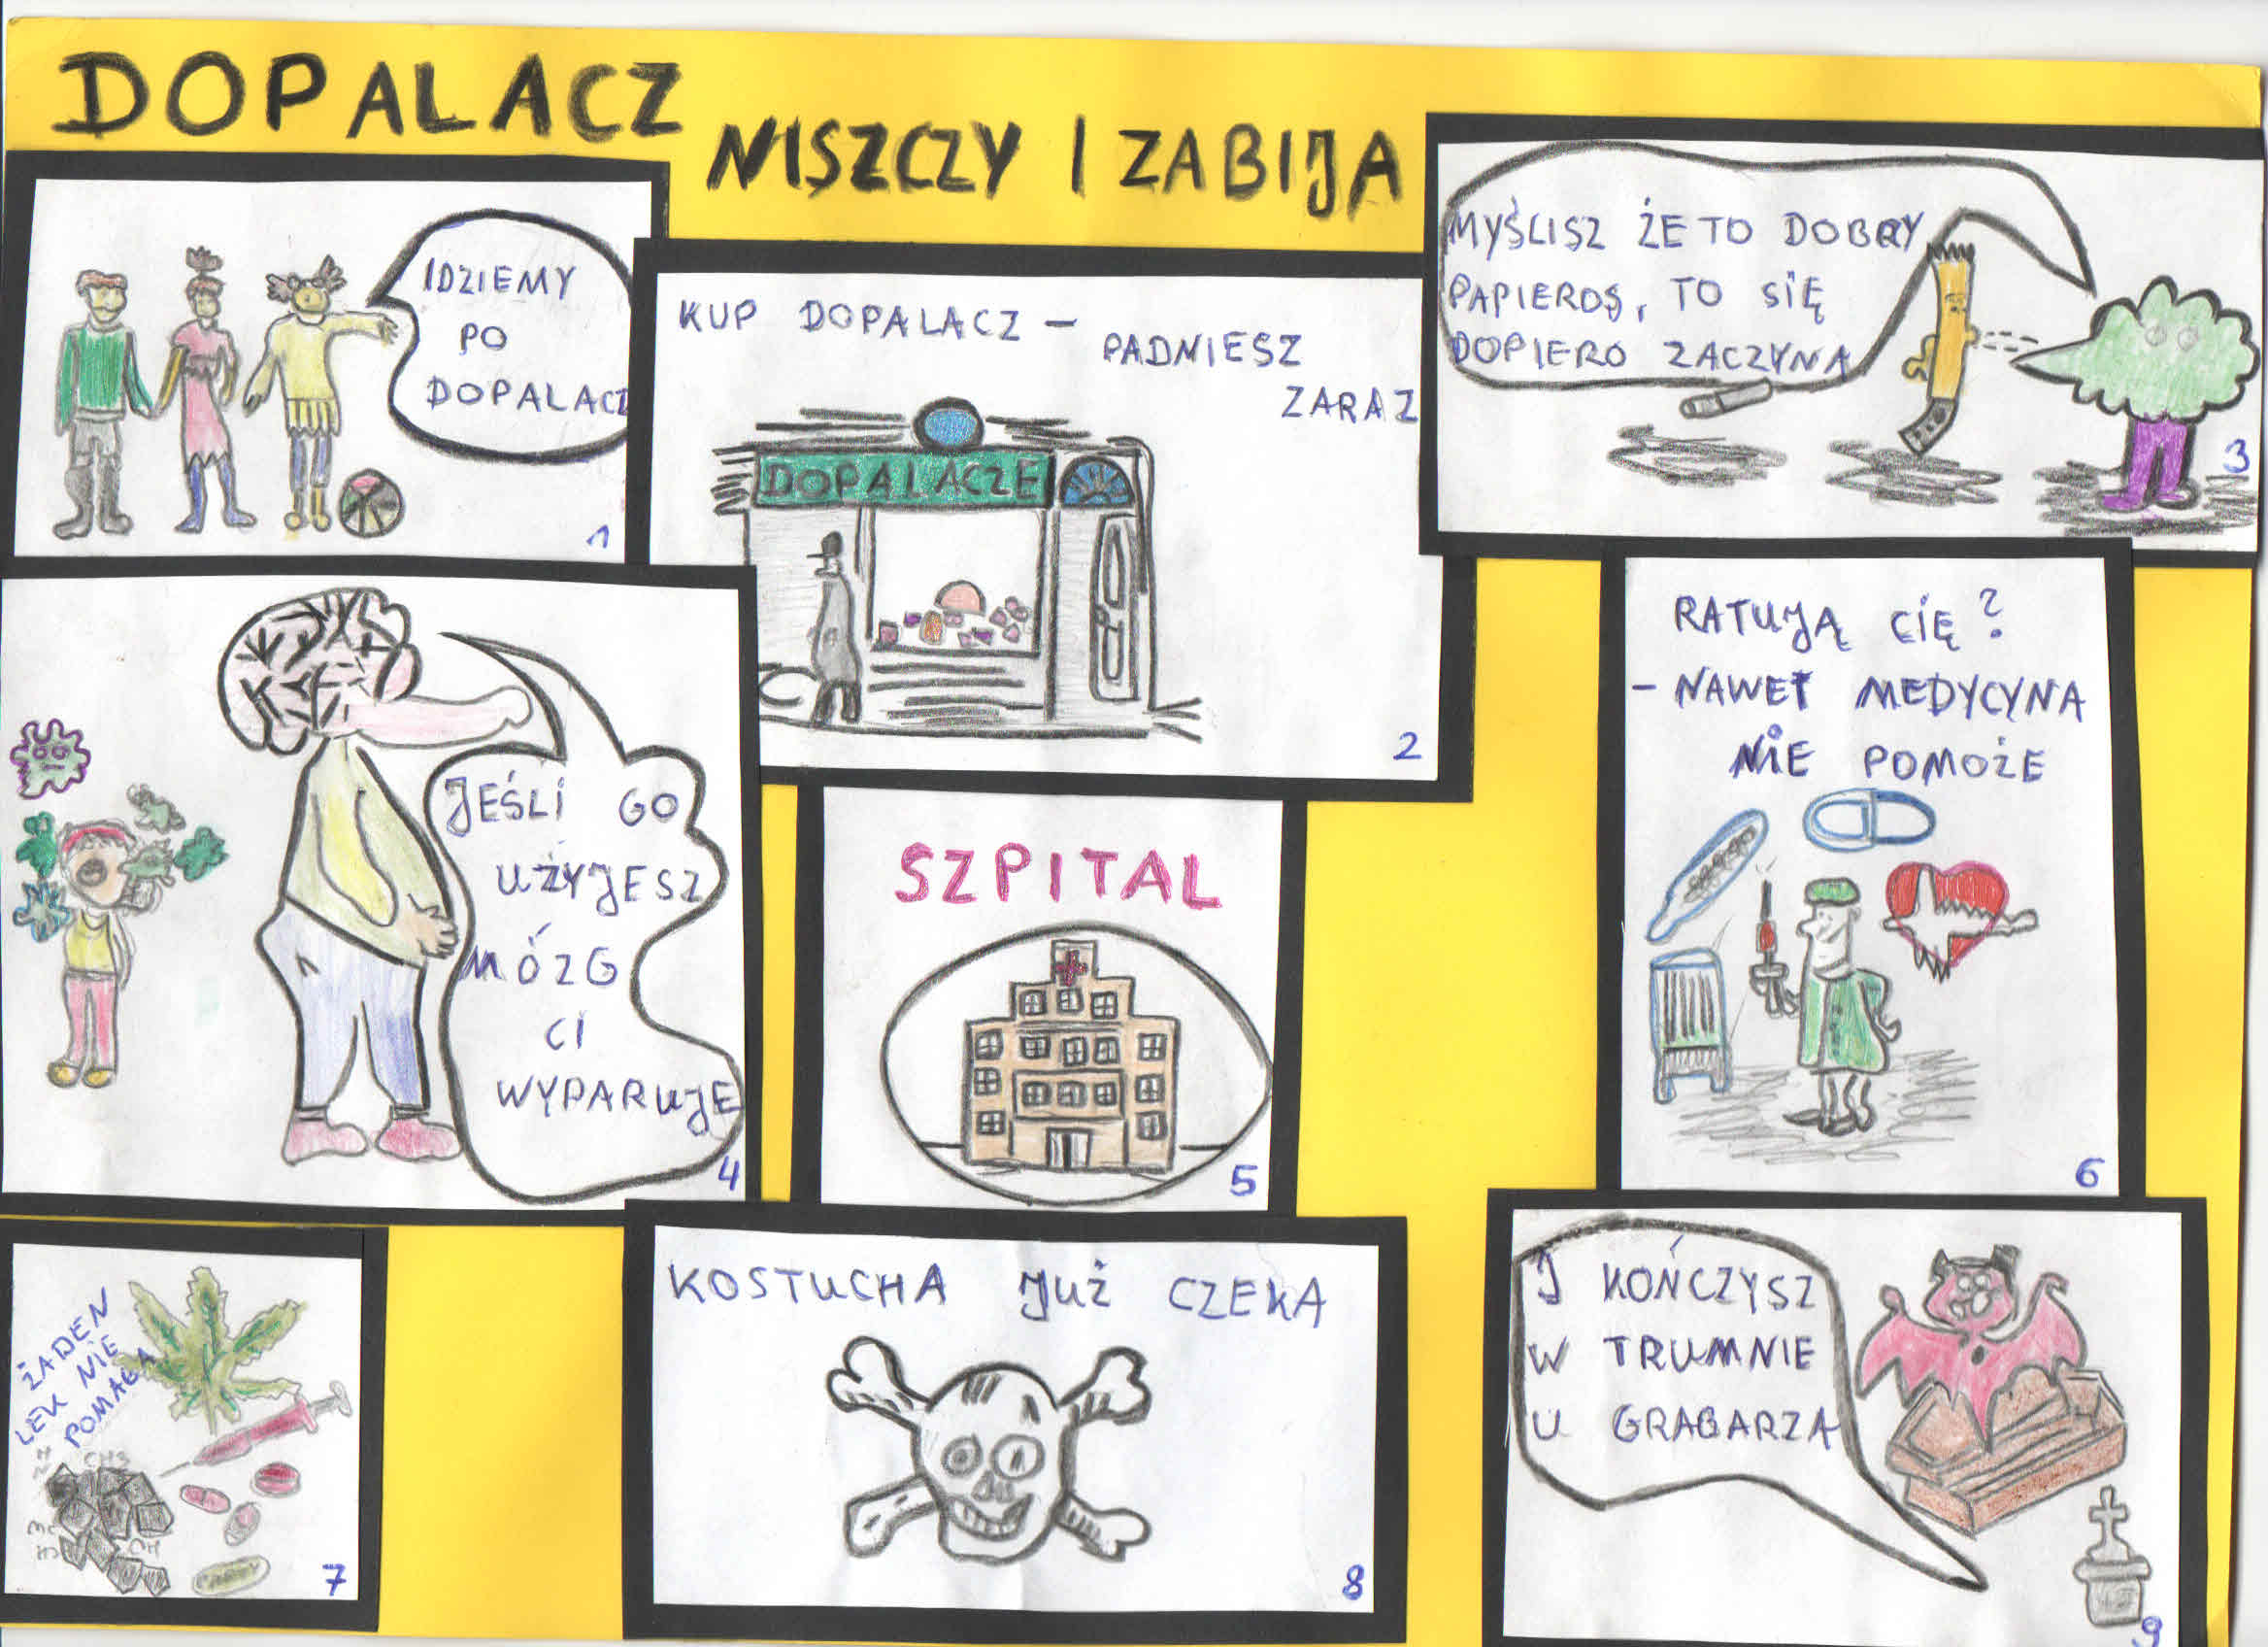 DOPALACZ
NISZCZY I ZABIJA
IDZIEMY
PO
DOPALACZ
1
KUP DOPALACZ – PADNIESZ
ZARAZ
DOPALACZE
2
MYŚLISZ ŻE TO DOBRY
PAPIEROS, TO SIĘ
DOPIERO ZACZYNA
3
JEŚLI GO
UŻYJESZ
MÓZG
CI
WYPARUJE
4
SZPITAL
5
RATUJĄ CIĘ?
– NAWET MEDYCYNA
NIE POMOŻE
6
ŻADEN
LEK NIE
POMAGA
7
KOSTUCHA JUŻ CZEKA
8
I KOŃCZYSZ
W TRUMNIE
U GRABARZA
9